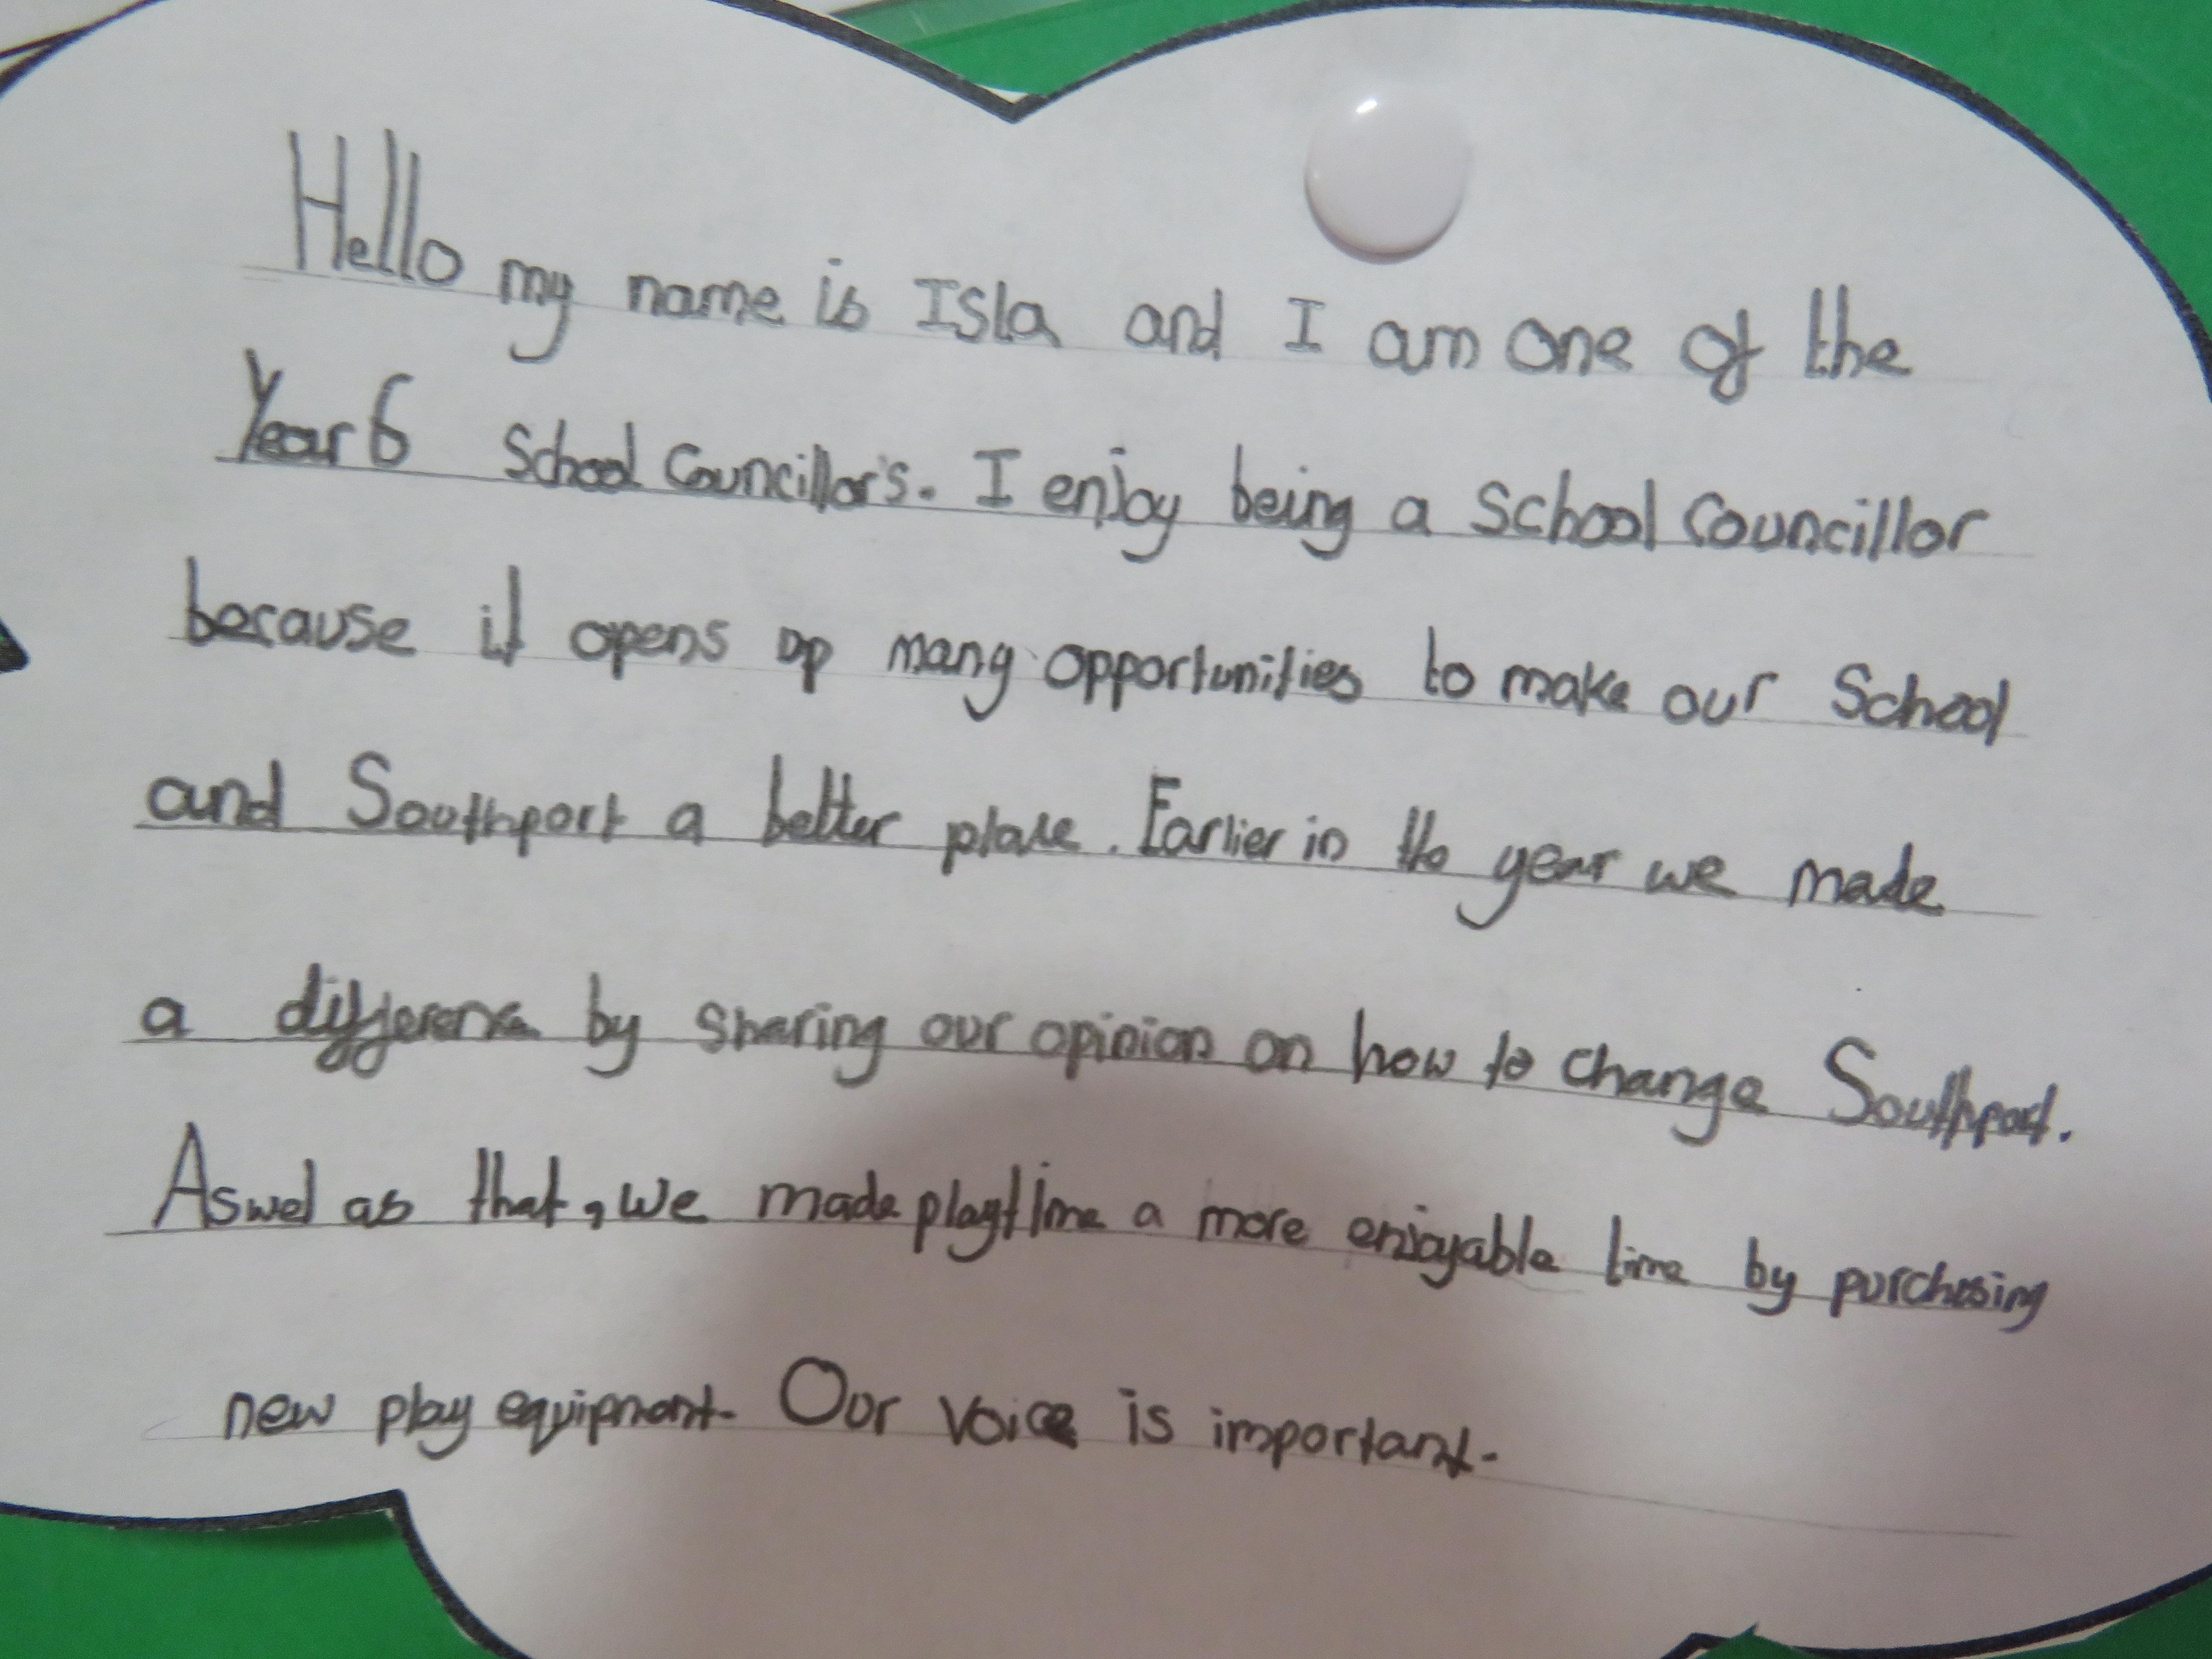 Hello my name is Isla and I am one of the
Year 6 School Councillor's. I enjoy being a School Councillor
because it opens up many opportunities to make our School
and Southport a better place. Earlier in the year we made
a difference by sharing our opinion on how to change Southport.
Aswel as that, we made playtime a more enjoyable time by purchasing
new play equipment. Our voice is important.